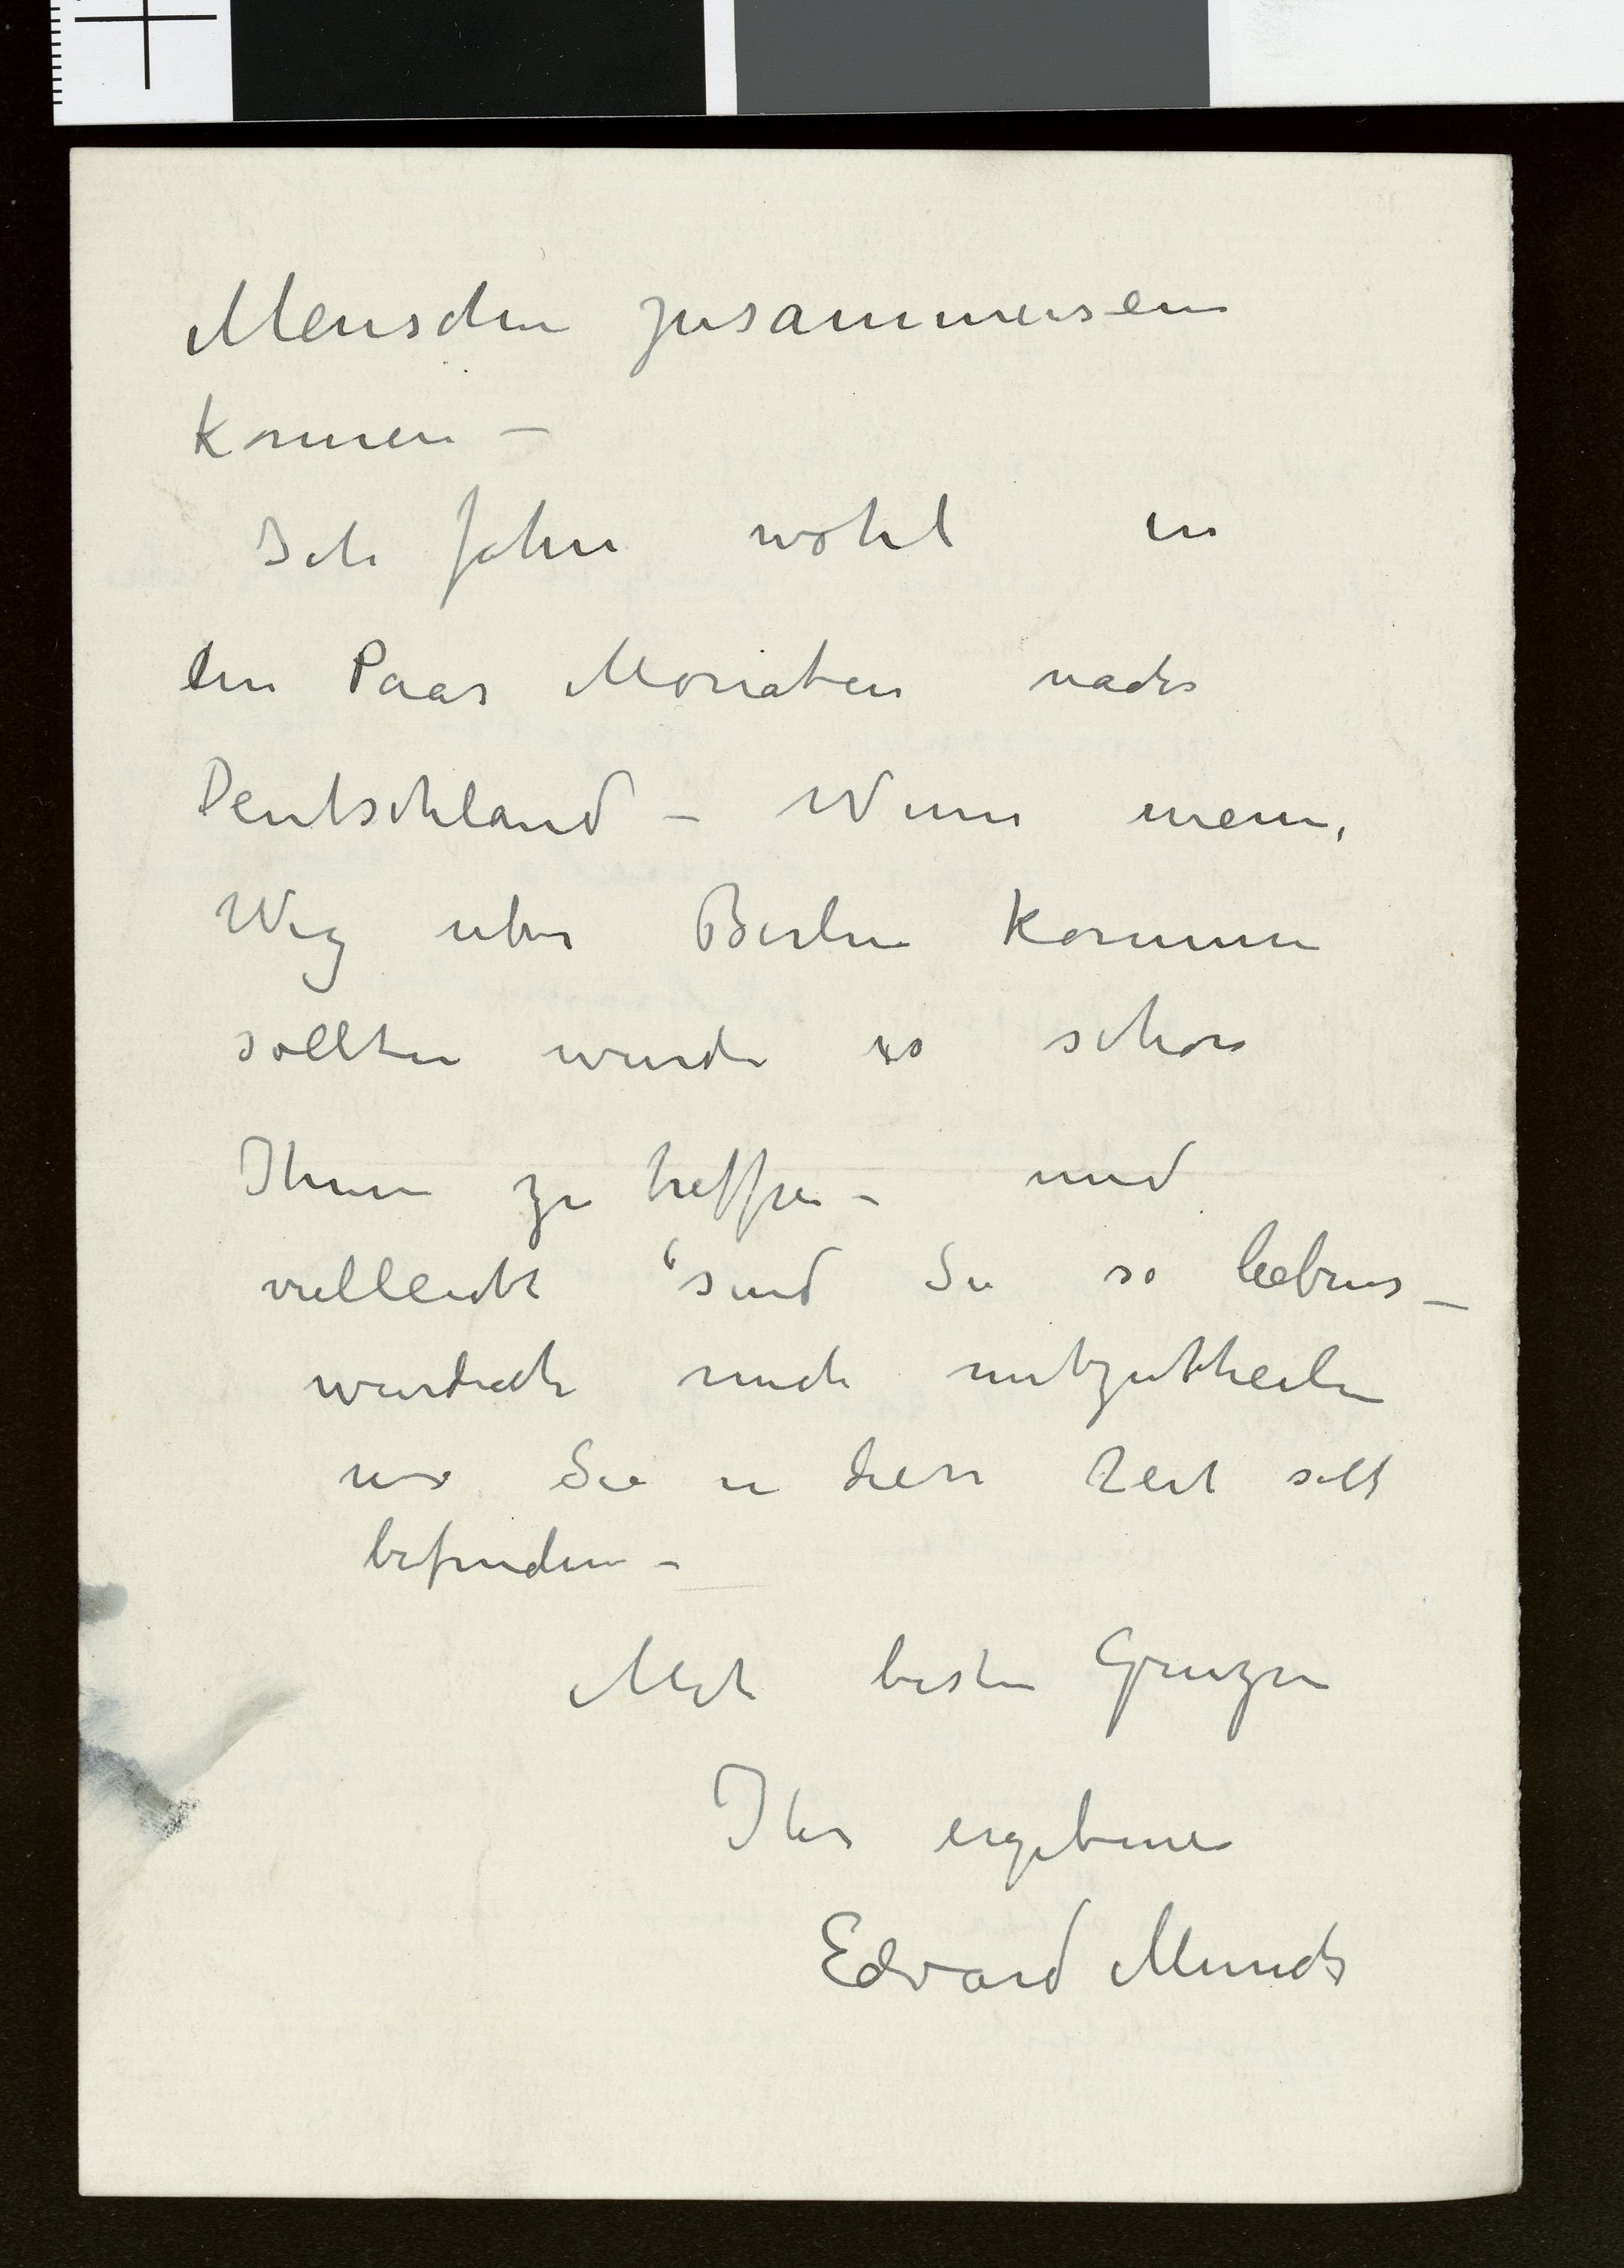 Menschen zusammensein
konnen –
Ich fahre wohl in
ein Paar Monaten nach
Deutschland – Wenn mein
Weg uber Berlin kommen
sollten wurde es schon
Ihnen zu treffen – und
vielleicht sind Sie so liebens–
wurdich mich mitzutheilen
wo Sie in diese Zeit
befinden –
Mit besten Gruzen
Ihr ergebener
Edvard Munch